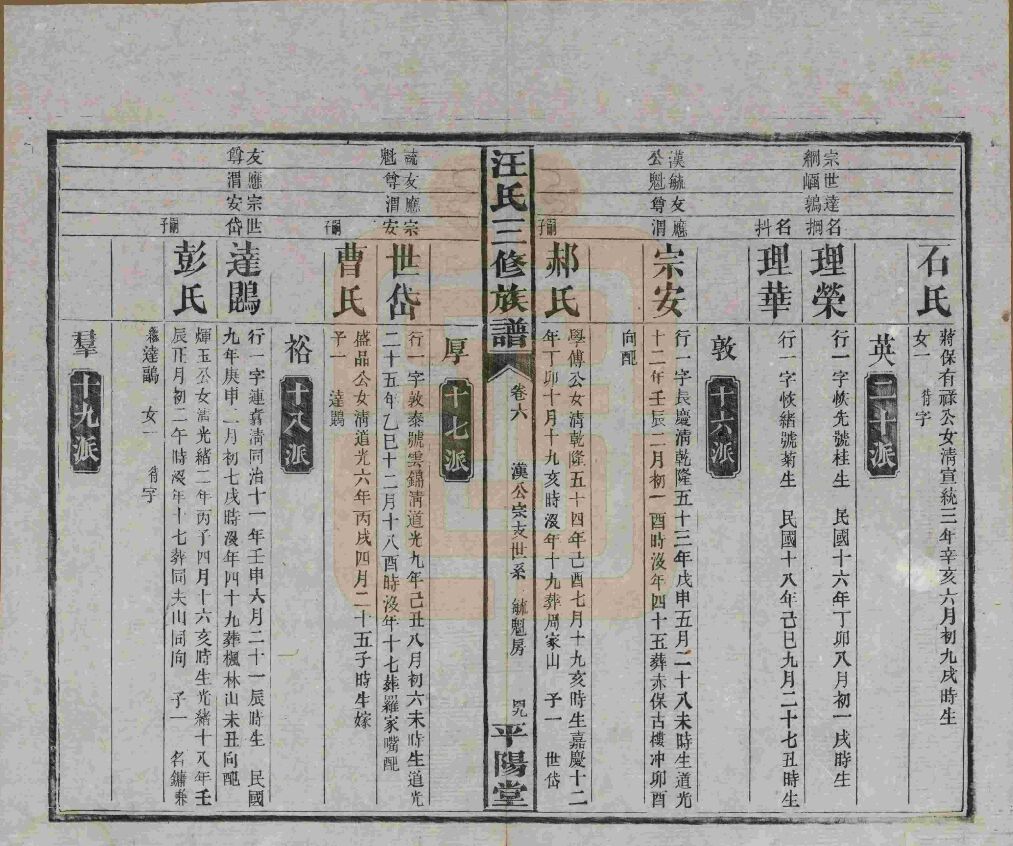 石氏
蔣保有祿公女清宣統三年辛亥六月初九戌時生
女一 待字
英 二十派
宗世達名
綱崛鵷搁
理榮
行一字恢先號桂生 民國十六年丁卯八月初一戌時生
名
抖
理華
行一字恢緒號菊生 民國十八年己巳九月二十七丑時生
敦 十六派
漢毓友應
公魁尊渭
宗安
行一字長慶清乾隆五十三年戊申五月二十八未時生道光
十二年壬辰二月初一酉時沒年四十五葬赤保古樓冲卯酉
向配
嗣子
郝氏
學傅公女清乾隆五十四年己酉七月十九亥時生嘉慶十二
年丁卯十月十九亥時沒年十九葬周家山 子一 世岱
汪氏三修族譜
卷六
漢公宗支世系 毓魁房
平陽堂
厚 十七派
毓友應宗
魁尊渭安
世岱
行一字敦泰號雲錦清道光九年己丑八月初六未時生道光
二十五年乙巳十二月十八酉時沒年十七葬羅家嘴配
嗣子
曹氏
盛品公女清道光六年丙戌四月二十五子時生嫁
子一 達鵾
裕 十八派
友應宗世
尊渭安岱
達鵾
行一字連耋清同治十一年壬申六月二十一辰時生 民國
九年庚申二月初七戌時沒年四十九葬楓林山未丑向配
嗣子
彭氏
煇玉公女清光緒二年丙子四月十六亥時生光緒十八年壬
辰正月初二午時沒年十七葬同夫山同向 子一 名鏞兼
祧達鷊 女一 待字
羣 十九派